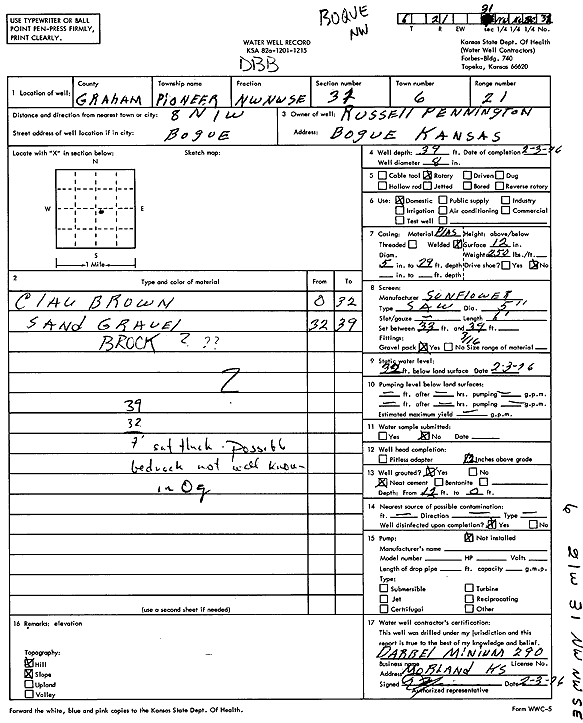 USE TYPEWRITER OR BALL
POINT PEN-PRESS FIRMLY,
PRINT CLEARLY.
BOQUE
NW
WATER WELL RECORD
KSA 82a-1201-1215
DBB
31
6 21
T R EW sec 1/4 1/4 1/4 No.
Kansas State Dept. Of Health
(Water Well Contractors)
Forbes-Bldg. 740
Topeka, Kansas 66620
1 Location of well: County Township name Fraction Section number Town number Range number
GRAHAM PIONEER NWNWSE 31 6 21
Distance and direction from nearest town or city: 8 N 1 W
3 Owner of well: RUSSELL PENNINGTON
Street address of well location if in city: BOGUE
Address: BOGUE KANSAS
Locate with "X" in section below: Sketch map:
N
W E
S
1 Mile
4 Well depth: 39 ft. Date of completion 2-3-76
Well diameter 8 in.
5 Cable tool Rotary Driven Dug
Hollow rod Jetted Bored Reverse rotary
6 Use: Domestic Public supply Industry
Irrigation Air conditioning Commercial
Test well
7 Casing: Material PLAS Height: above/below
Threaded Welded Surface 12 in.
Diam. Weight 250 lbs./ft.
5 in. to 29 ft. depth Drive shoe? Yes No
in. to ft. depth
2 Type and color of material From To
CLAY BROWN 0 32
SAND GRAVEL 32 39
BROCK ? ??
?
39
32
7' sat thick. Possible
bedrock not well known
in Og
8 Screen:
Manufacturer SUNFLOWER
Type SAW Dia. 5"
Slot/gauze Length 6'
Set between 33 ft. and 39 ft.
Fittings:
Gravel pack Yes No Size range of material
9 Static water level:
32 ft. below land surface Date 2-3-76
10 Pumping level below land surfaces:
ft. after hrs. pumping g.p.m.
ft. after hrs. pumping g.p.m.
Estimated maximum yield g.p.m.
11 Water sample submitted:
Yes No Date
12 Well head completion:
Pitless adapter 12 Inches above grade
13 Well grouted? Yes No
Neat cement Bentonite
Depth: From 12 ft. to 0 ft.
14 Nearest source of possible contamination:
ft. Direction Type
Well disinfected upon completion? Yes No
15 Pump: Not installed
Manufacturer's name
Model number HP Volts
Length of drop pipe ft. capacity g.m.p.
Type:
Submersible Turbine
Jet Reciprocating
Certrifugal Other
(use a second sheet if needed)
16 Remarks: elevation
Topography:
Hill
Slope
Upland
Valley
17 Water well contractor's certification:
This well was drilled under my jurisdiction and this
report is true to the best of my knowledge and belief.
DARREL MINIUM 290
Business name License No.
Address MORLAND KS
Signed Date 2-3-76
Authorized representative
Forward the white, blue and pink copies to the Kansas State Dept. Of Health.
Form WWC-5
6 21W 31 NW NW SE